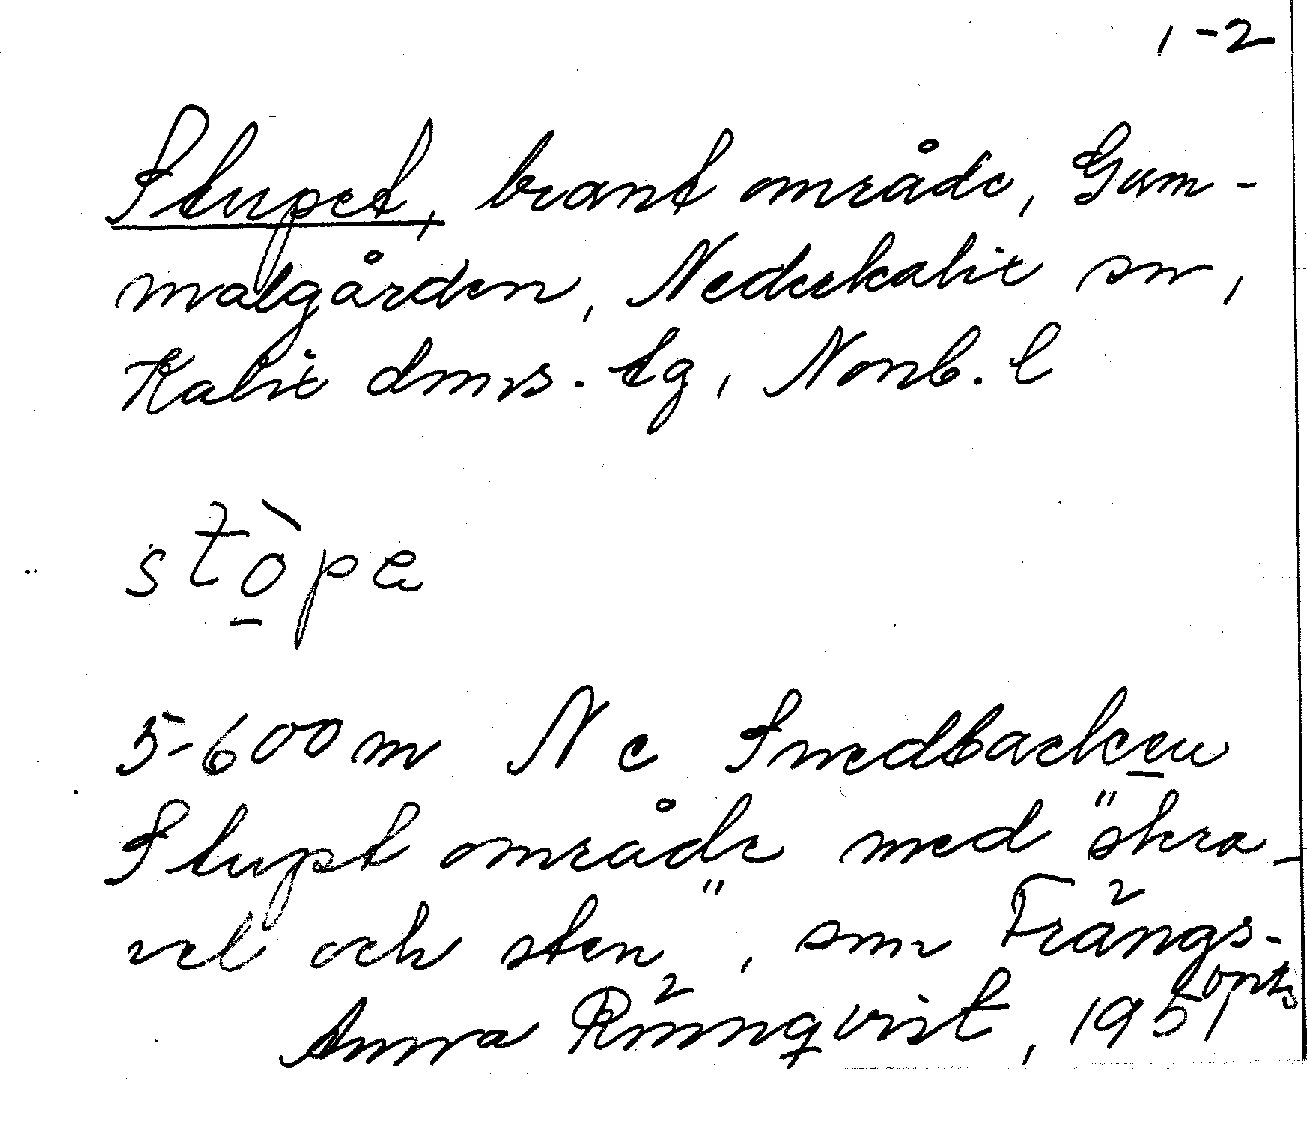 1-2
Stupet, brant område, Gam-
malgården, Nederkalix sn,
Kalix dms. tg, Norrb. l
stòpe
5-600 m N e Smedbacken
Stupt område med "skra-
vel och sten", som Trångs-
Anna Rönnqvist, 1951